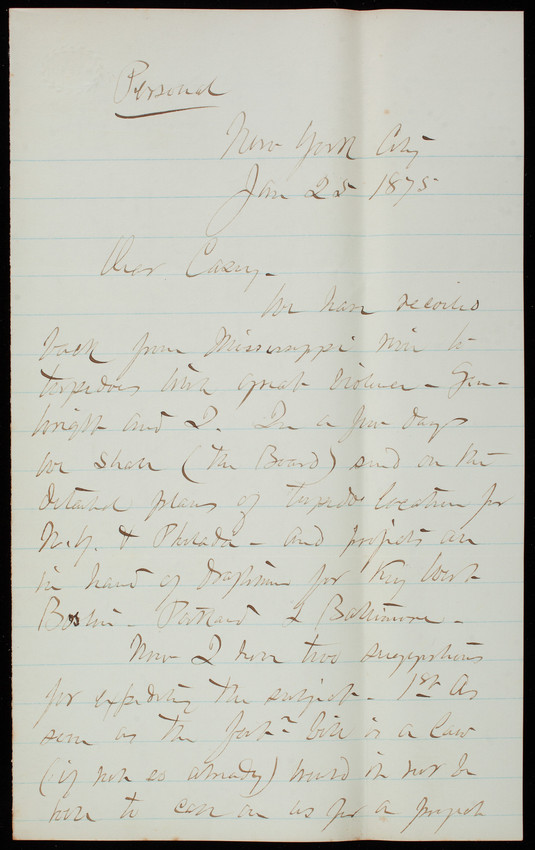 Personal
New York City
Jan 25 1875
Dear Casey -
We have recoiled
back from Mississippi river to
torpedoes with great violence - Gen
Wright and I. In a few days
we shall (the Board) send on the
detailed plans of torpedo location for
N.Y. & Philada - and projects are
in hand of draftsmen for Key West
Boston - Portland & Baltimore -
Now I have two suggestions
for expediting the subject - 1st As
soon as the fortn bill is a law
(if not so already) would it not be
well to call on us for a project